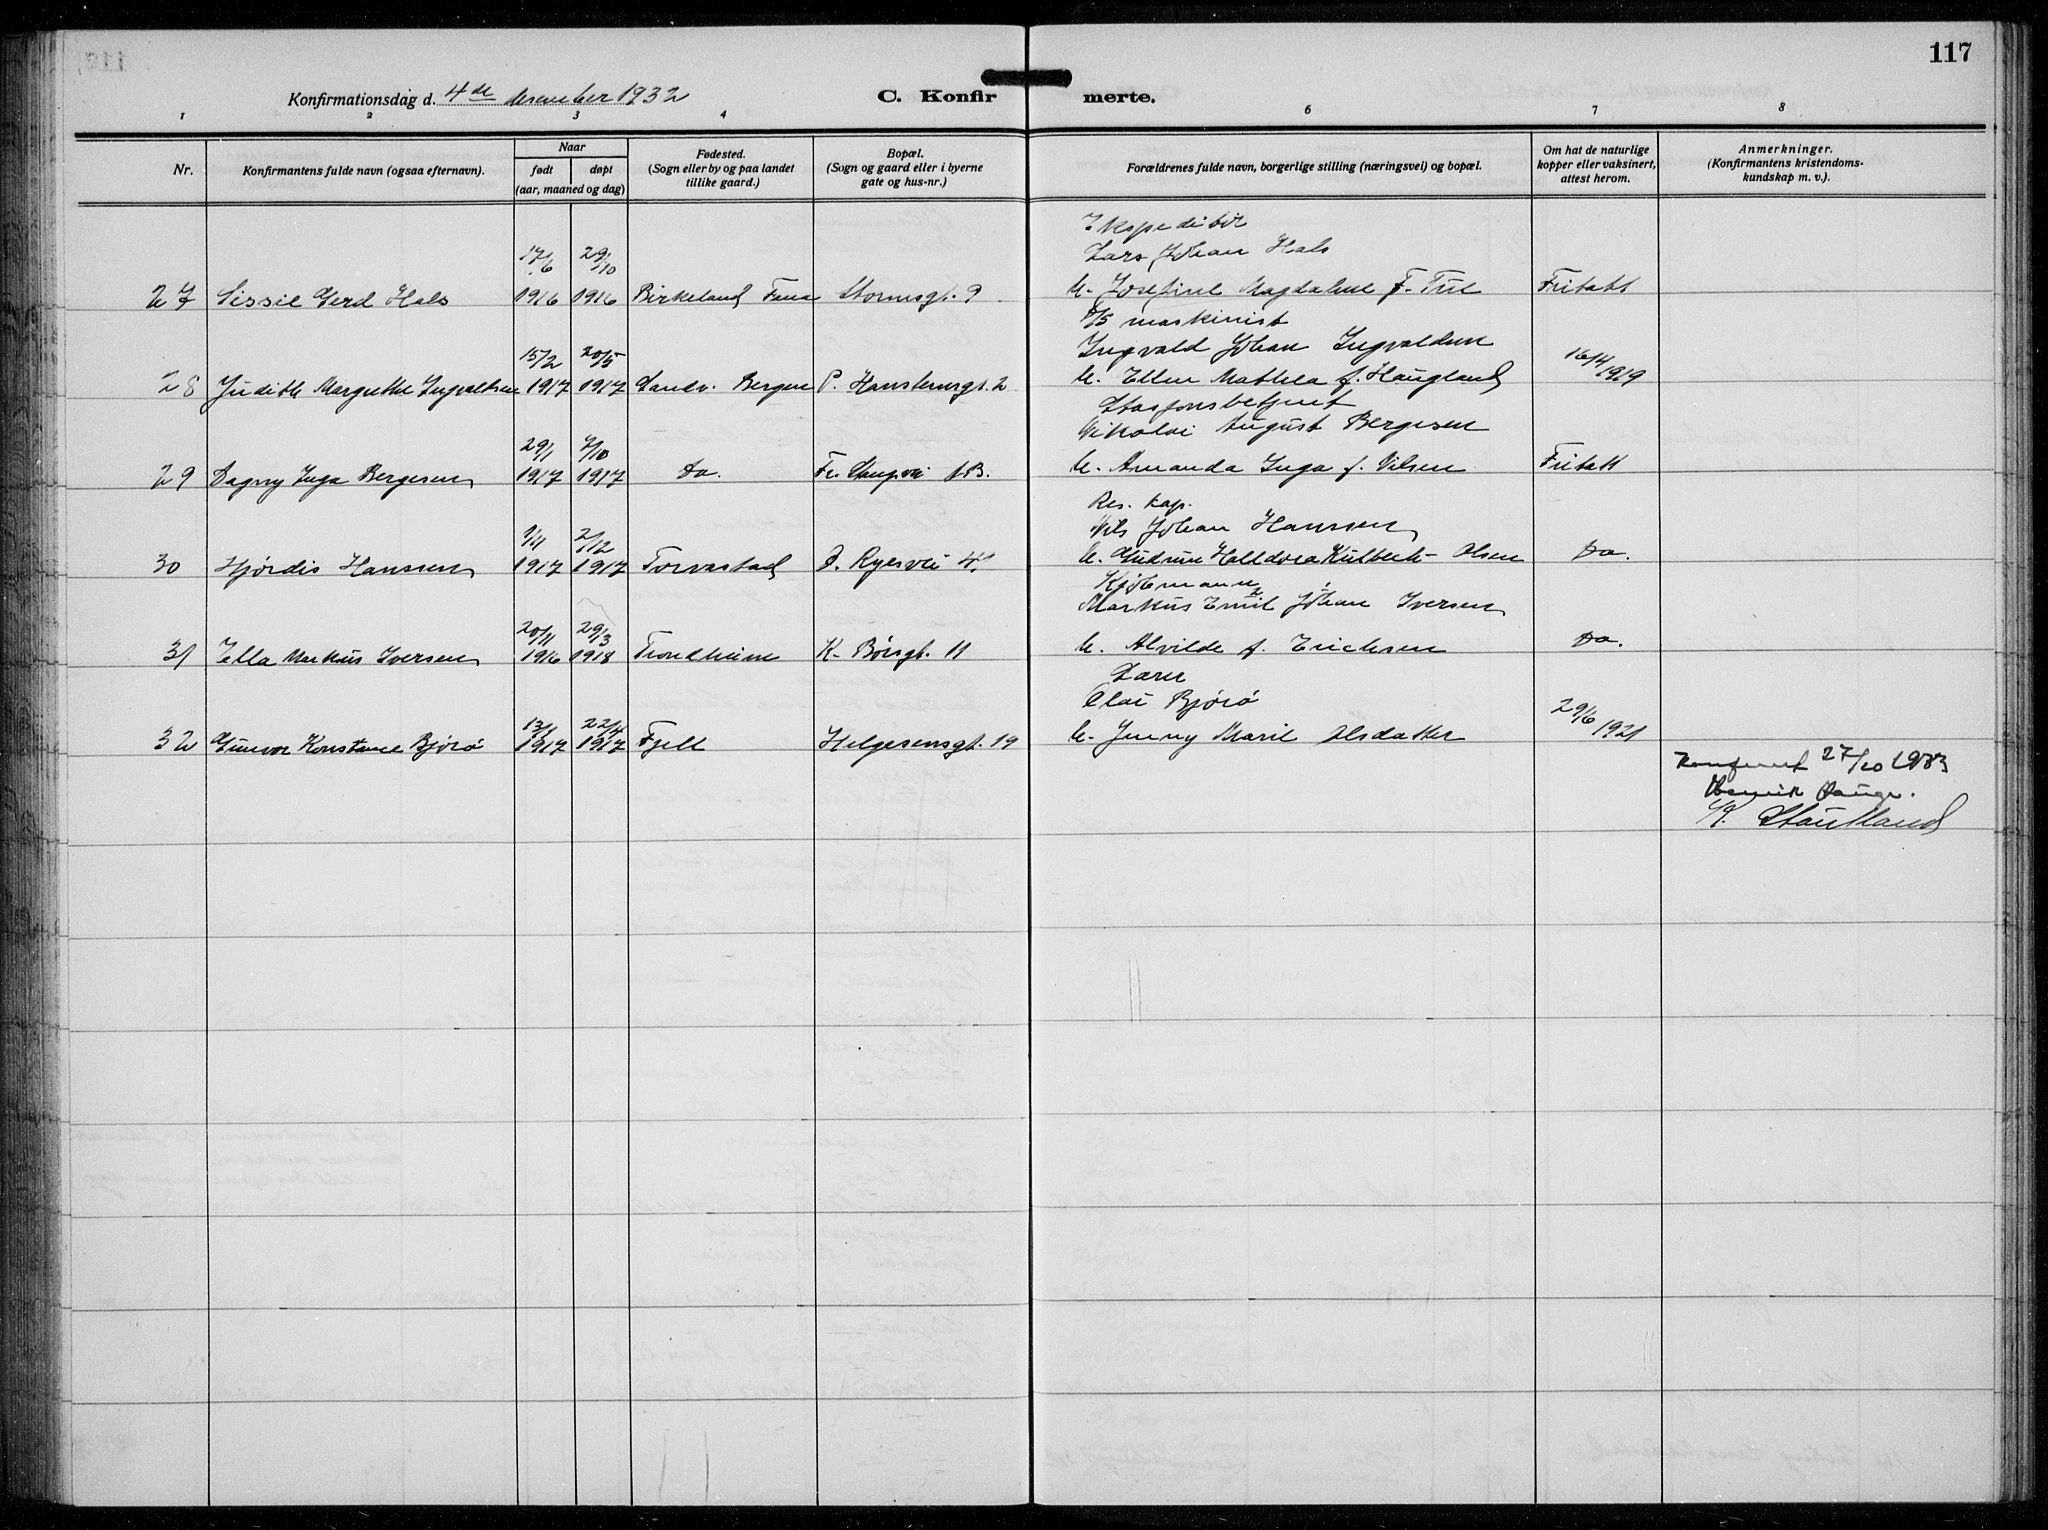 117
Konfirmationsdag d. 4de desember 1932
C. Konfirmerte.
1 2 3 4 6 7 8
Nr.
Konfirmantens fulde navn (ogsaa efternavn).
Naar
født døpt
(aar, maaned og dag)
Fødested.
(Sogn eller by og paa landet
tillike gaard.)
Bopæl.
(Sogn og gaard eller i byerne
gate og hus-nr.)
Forældrenes fulde navn, borgerlige stilling (næringsvei) og bopæl.
Om hat de naturlige
kopper eller vaksinert,
attest herom.
Anmerkninger.
(Konfirmantens kristendoms-
kundskap m. v.).
Ekspeditør
17/6 29/10 Lars Johan Hals
27 Sissil Gerd Hals 1916 1916 Birkeland Fana Stormsgt. 9 u. Josefine Magdalene f. Fritatt
D/S maskinist
15/2 20/5 Ingvald Johan Ingvaldsen 16/4
28 Judith Margrethe Ingvaldsen 1917 1917 Sandv. Bergen P. Hansteensgt. 2 u. Ellen Mathea f. Haugland 1919
Stasjonsbetjent
29/1 7/10 Nikolai August Bergesen
29 Dagny Inga Bergesen 1917 1917 Do. Fr. u. Amanda Inga f. Nilsen Fritatt
Res. kap.
1/11 2/12 Nils Johan Hanssen
30 Hjørdis Hanssen 1917 1917 Torvastad O. Ryesvei u. Gudrun Halldora Olsen Do.
Kjøbmann
20/11 29/3 Markus Emil Johan Iversen
31 Ella Markus Iversen 1916 1918 Trondheim K. Børsgt. 11 u. Alvilde f. Erichsen Do.
Lærer
13/1 22/4 Olai Bjørø 29/6
32 Gunvor Konstanse Bjørø 1917 1917 Fjell Helgesensgt. 19 u. Jenny Marie Olsdatter 1921
Konferert 27/10 1933
Henrik
K. Stautland